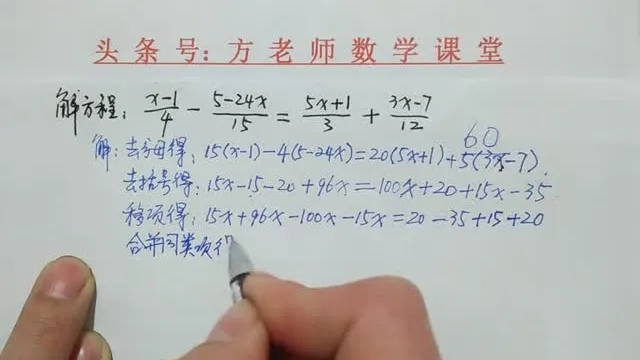 头条号:方老师数学课堂
解方程: (x-1)/4 - (5-24x)/15 = (5x+1)/3 + (3x-7)/12
60
解:去分母得: 15(x-1)-4(5-24x)=20(5x+1)+5(3x-7).
去括号得: 15x-15-20+96x=100x+20+15x-35
移项得: 15x+96x-100x-15x=20-35+15+20
合并同类项